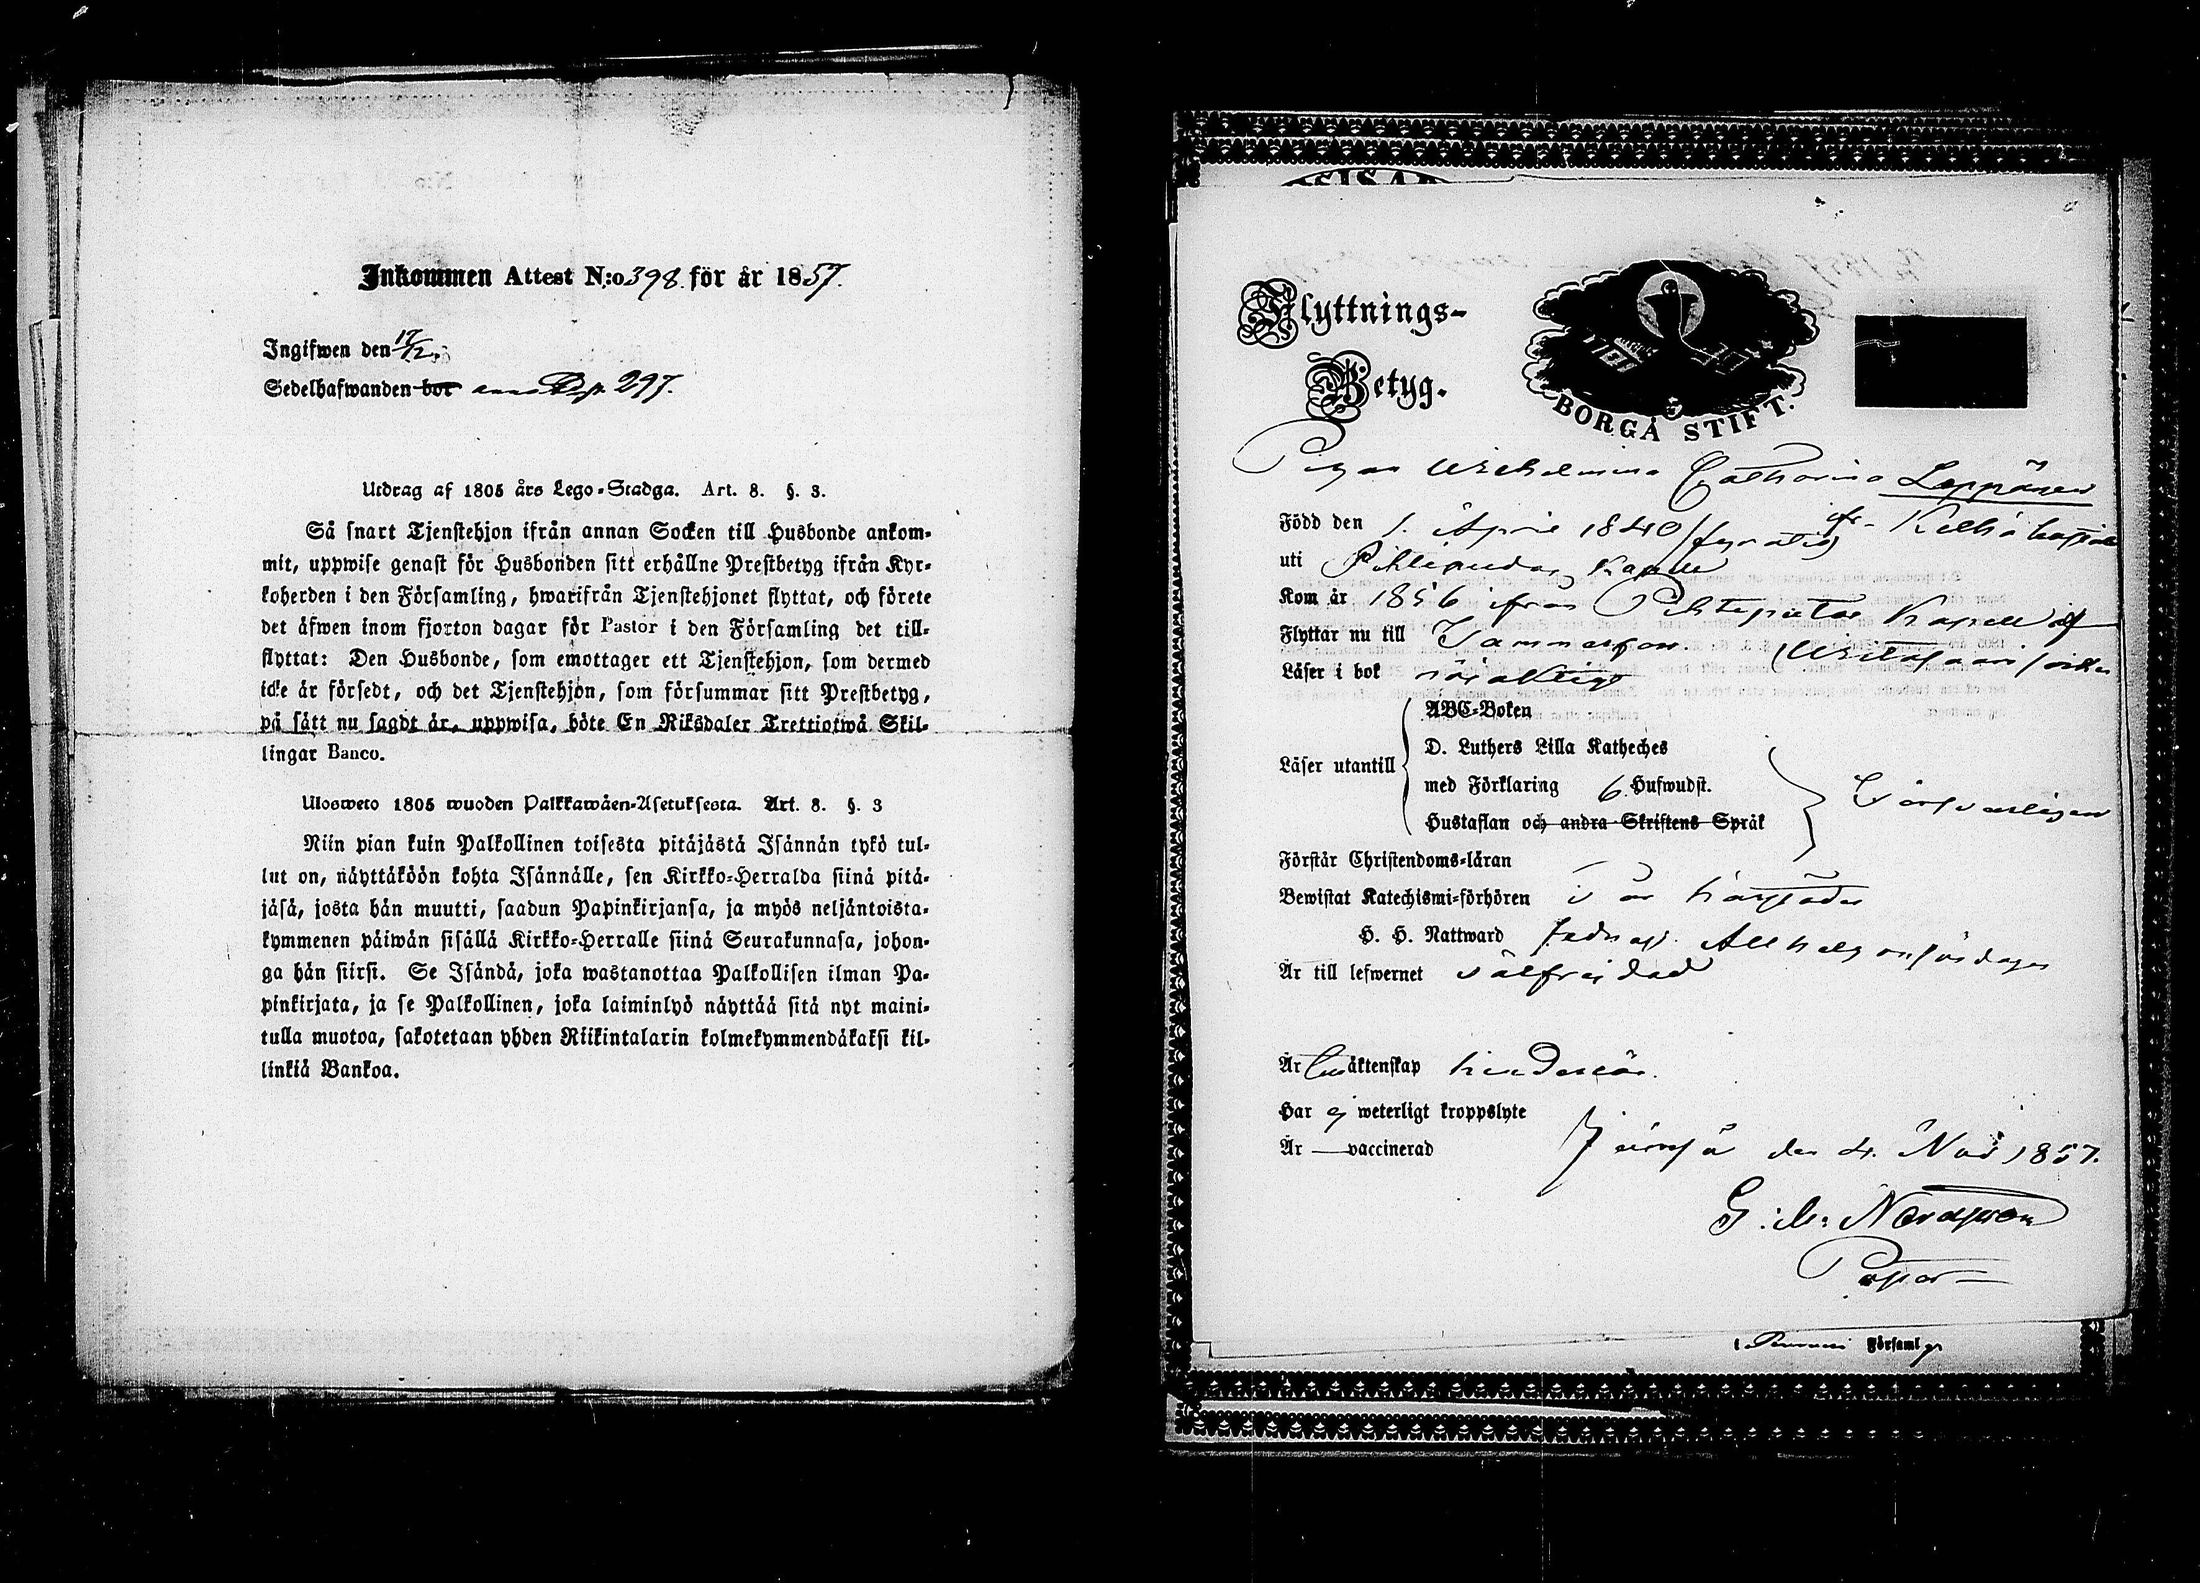 Inkommen Attest N:o 398. för år 1857.
Ingifwen den 17/12
Sedelhafwanden bor 297.
Utdrag af 1805 års Lego-Stadga. Art. 8. §. 3.
Så snart Tjenstehjon ifrån annan Socken till Husbonde ankom-
mit, uppwise genast för Husbonden sitt erhållne Prestbetyg ifrån Kyr-
koherden i den Församling, hwarifrån Tjenstehjonet flyttat, och förete
det äfwen inom fjorton dagar för Pastor i den Församling det till-
flyttat: Den Husbonde, som emottager ett Tjenstehjon, som dermed
icke är försedt, och det Tjenstehjon, som försummar sitt Prestbetyg,
på sätt nu sagdt är, uppwisa, böte En Riksdaler Trettiotwå Skil-
lingar Banco.
Ulosweto 1805 wuoden Palkkawäen-Asetuksesta. Art. 8. §. 3
Niin pian kuin Palkollinen toisesta pitäjästä Isännän tykö tul-
lut on, näyttäköön kohta Isännälle, sen Kirkko-Herralda siinä pitä-
jäsä, josta hän muutti, saadun Papinkirjansa, ja myös neljäntoista-
kymmenen päiwän sisällä Kirkko-Herralle siinä Seurakunnasa, johon-
ga hän siirsi. Se Isändä, joka wastanottaa Palkollisen ilman Pa-
pinkirjata, ja se Palkollinen, joka laiminlyö näyttää sitä nyt maini-
tulla muotoa, sakotetaan yhden Riikintalarin kolmekymmendäkaksi kil-
linkiä Bankoa.
Flyttnings-
Betyg.
BORGÅ STIFT.
Pigan Wilhelmina Catharina Leppänen
Född den 1. April 1840 (fyratio) fr.
uti Pihtipudas Kapell
Kom år 1856 ifrån Pihtipudas Kapell af
Flyttar nu till Tammerfors. Wiitasaari socken
Läser i bok
ABC-Boken
D. Luthers Lilla Katheches
Läser utantill
med Förklaring 6 Hufwudst.
Hustaflan och andra Skriftens Språk
Förstår Christendoms-läran
Bewistat Katechismi-förhören i år
H. H. Nattward
Är till lefwernet välfrejdad
Är till äktenskap hinderslös.
Har ej weterligt kroppslyte
Är — vaccinerad
den 4. Nov 1857.
G. Nordström
Pastor
i Församl